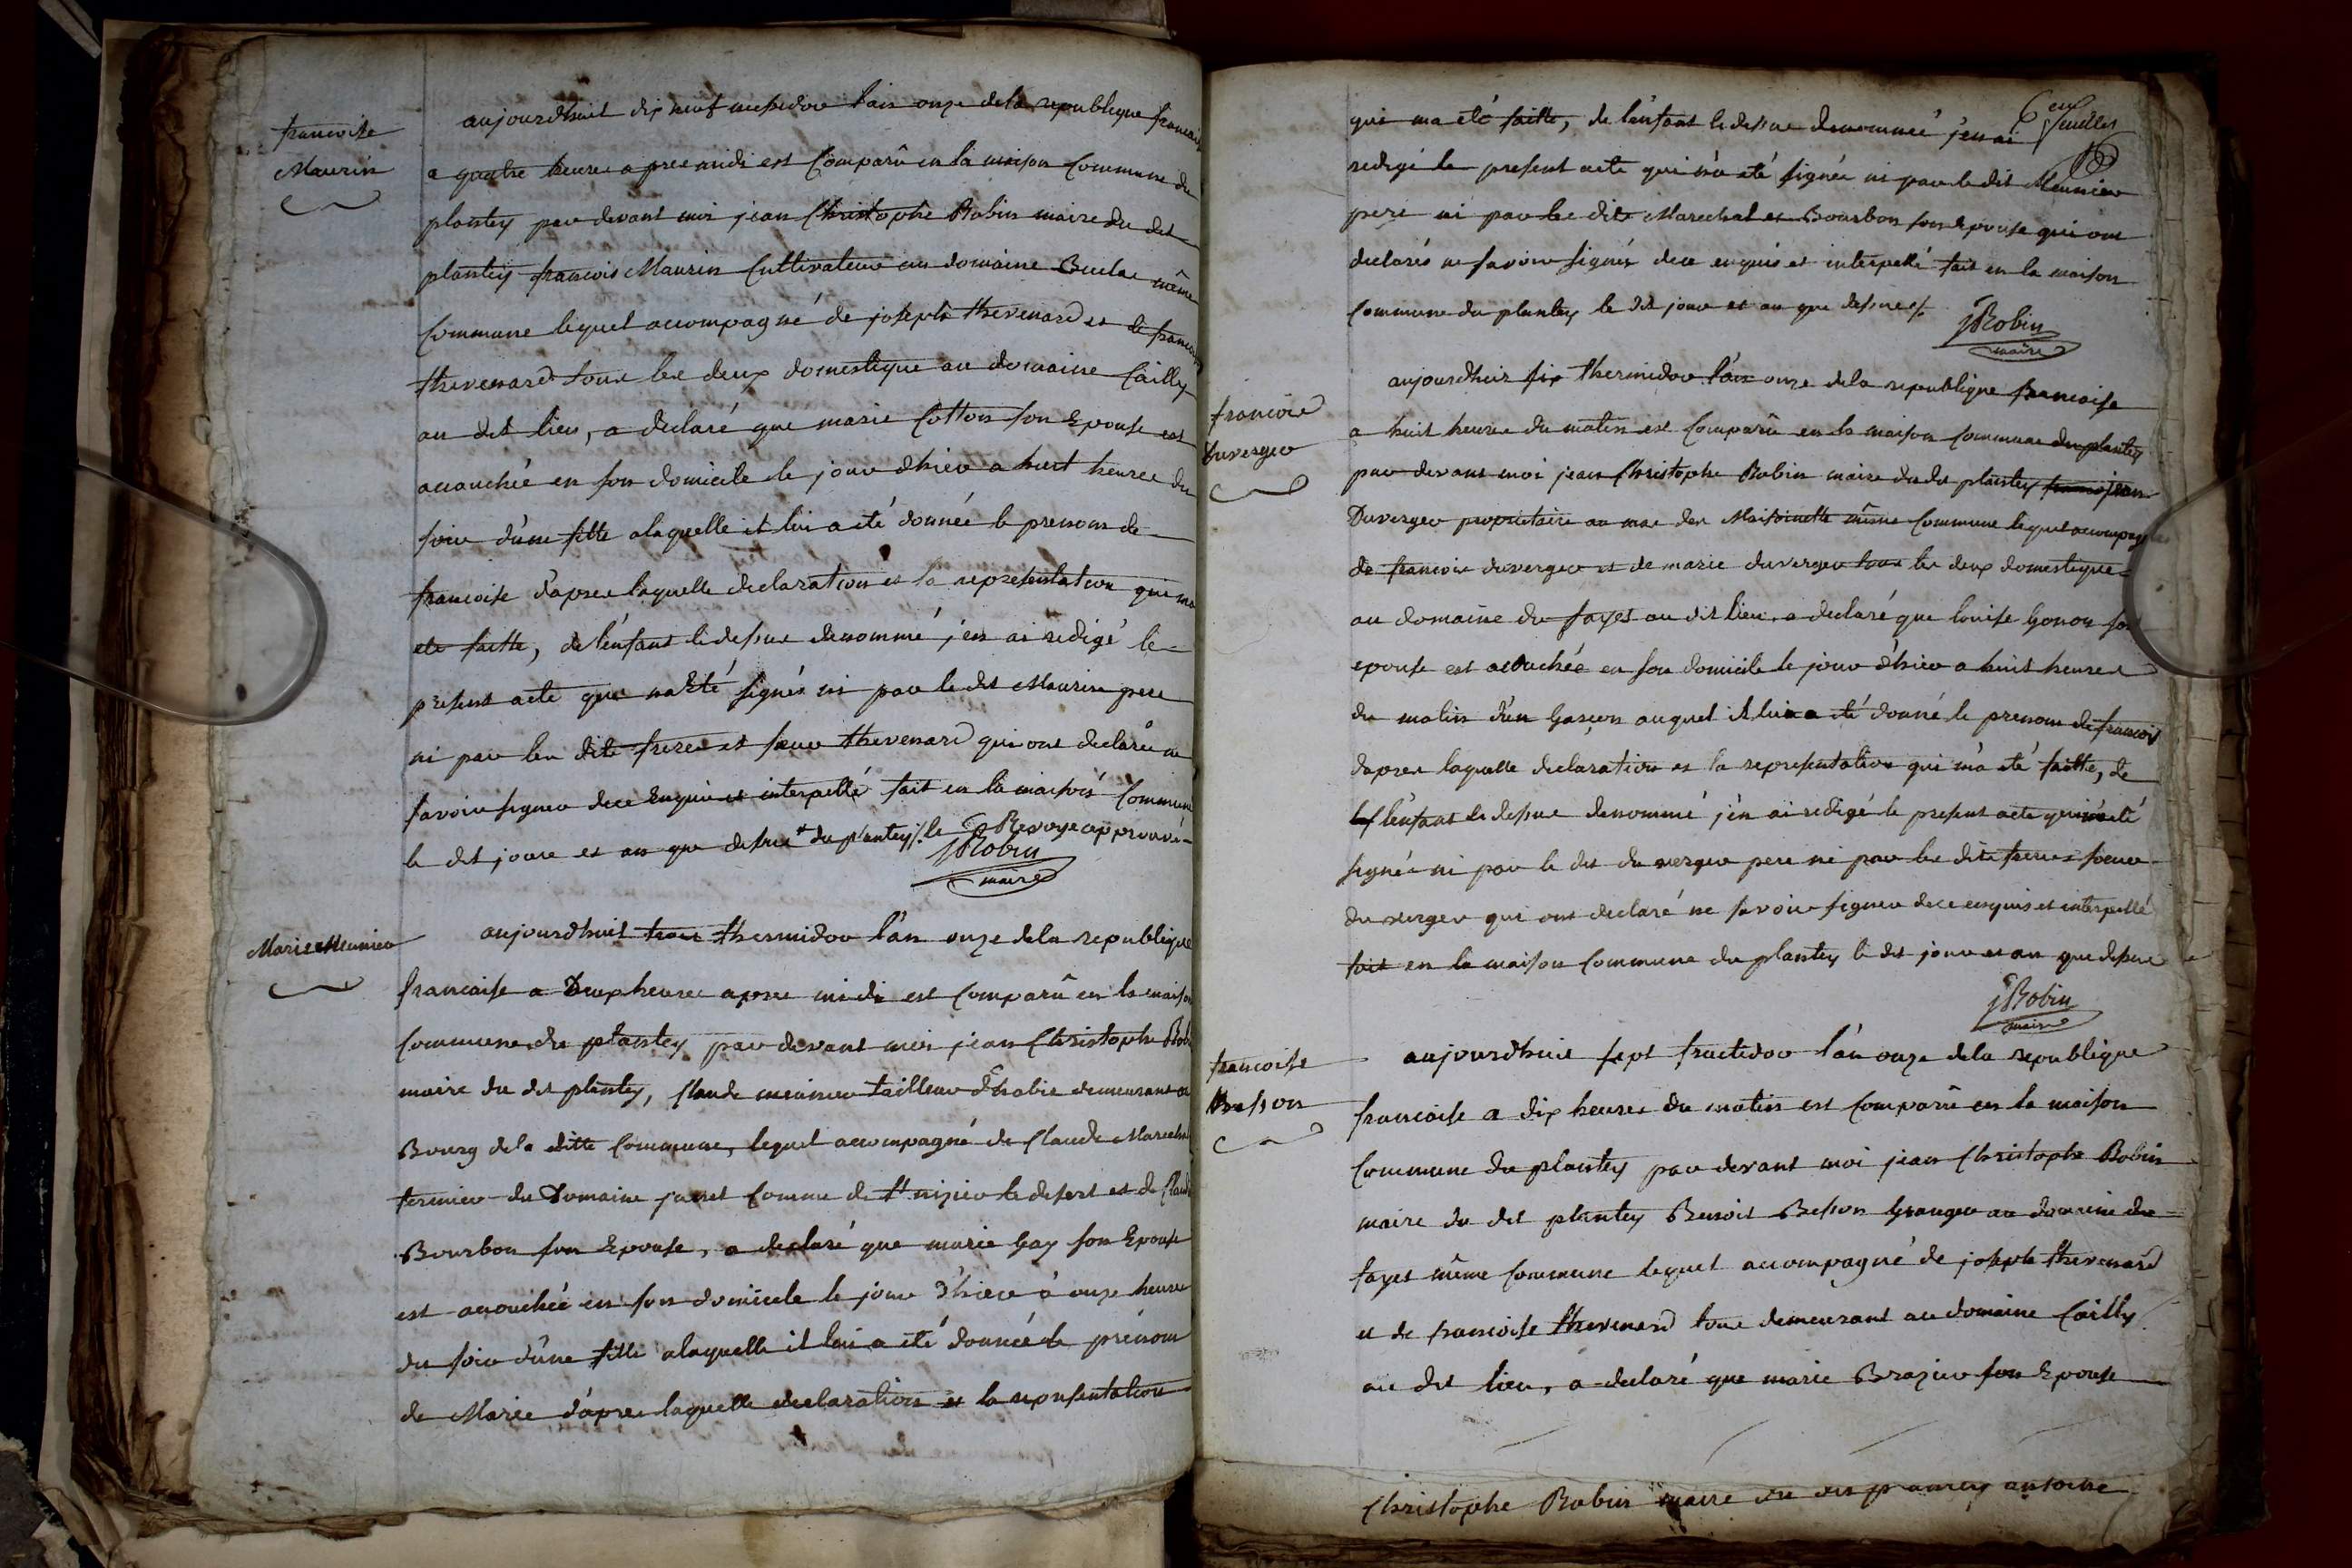 francoise
Maurin
aujourdhuit dix neuf messidor l'an onze dela republique francaise
a quatre heures apres midi est Comparû en la maison Commune du
plantey par devant moi jean Christophe Robin maire du dit
plantey francois Maurin Cultivateur au domaine même
Commune lequel accompagné de joseph thevenard et de francoise
thevenard tous les deux domestique au domaine Cailly
au dit lieu, a declaré que marie Cotton son Epouse est
accouchée en son domicile le jour d'hier a huit heures du
soir d'une fille alaquelle il lui a été donnée le prenom de
francoise d'apres laquelle declaration et la representation qui ma
ete faitte, de l'enfant li dessus denommé j'en ai redigé le
present acte qui na Eté signés ni par le dit Maurin pere
ni par les dits freres et soeur thevenard qui ont declarés ne
savoir signer dece Enquis et interpellé fait en la maison Commune
le dit jour et an que dessus + du plantey /. le Renvoye approuvé
JRobin
maire
Marie Meunier
aujourdhuit trois thermidor l'an onze dela republique
francaise a Deux heures apres midi est Comparû en la maison
Commune du plantey par devant moi jean Christophe Robin
maire du dit plantey, Claude meunier tailleur d'habis demeurant au
Bourg dela ditte Commune, lequel accompagné de Claude Marechal
fermier du Domaine Commune de St nizier le desert et de Claudine
Bourbon son Epouse, a declaré que marie Gay son Epouse
est accouchée en son domicile le jour d'hier à onze heures
du soir d'une fille alaquelle il lui a été donnée le prénom
de Marie d'apres laquelle declaration et la representation
6eme feuillet
qui ma été faitte, de l'enfant le dessus denommée j'en ai
redigé le present acte qui n'a été signée ni par le dit Meunier
pere ni par les dits Marechal et Bourbon son Epouse qui ont
declarés ne savoir signés dece enquis et interpellé fait en la maison
Commune du plantey le dit jour et an que dessus /.
JRobin
maire
francois
Duverger
aujourdhuis six thermidor l'an onze dela republique francaise
a huit heures du matin est Comparû en la maison Commune du plantey
par devant moi jean Christophe Robin maire du dit plantey jean
Duverger proprietaire au mas des même Commune lequel accompagné
de francois duverger et de marie duverger tous les deux domestique
au domaine du fayet au dit lieu, a declaré que louise Gonon son
epouse est accouchée en son domicile le jour d'hier a huit heures
du matin d'un Garçon auquel il lui a été donné le prenom de francois
dapres laquelle declaration et la representation qui m'a été faitte, de
l'enfant le dessus denommé j'en ai redigé le present acte qui n'a eté
signée ni par le dit du verger pere ni par les dits freres soeur
du verger qui ont declaré ne savoir signer dece enquis et interpellé
fait en la maison Commune du plantey le dit jour et an que dessus
JRobin
maire
francoise
Besson
aujourdhuit sept fructidor l'an onze dela republique
francaise a dix heures du matin est Comparû en la maison
Commune du plantey par devant moi jean Christophe Robin
maire du dit plantey Benoit Besson Granger au domaine du
fayet même Commune lequel accompagné de joseph thevenard
et de francoise thevenard tous demeurant au domaine Cailly
au dit lieu, a declaré que marie Brazier son Epouse
Christophe Robin maire du dit plantey antoine